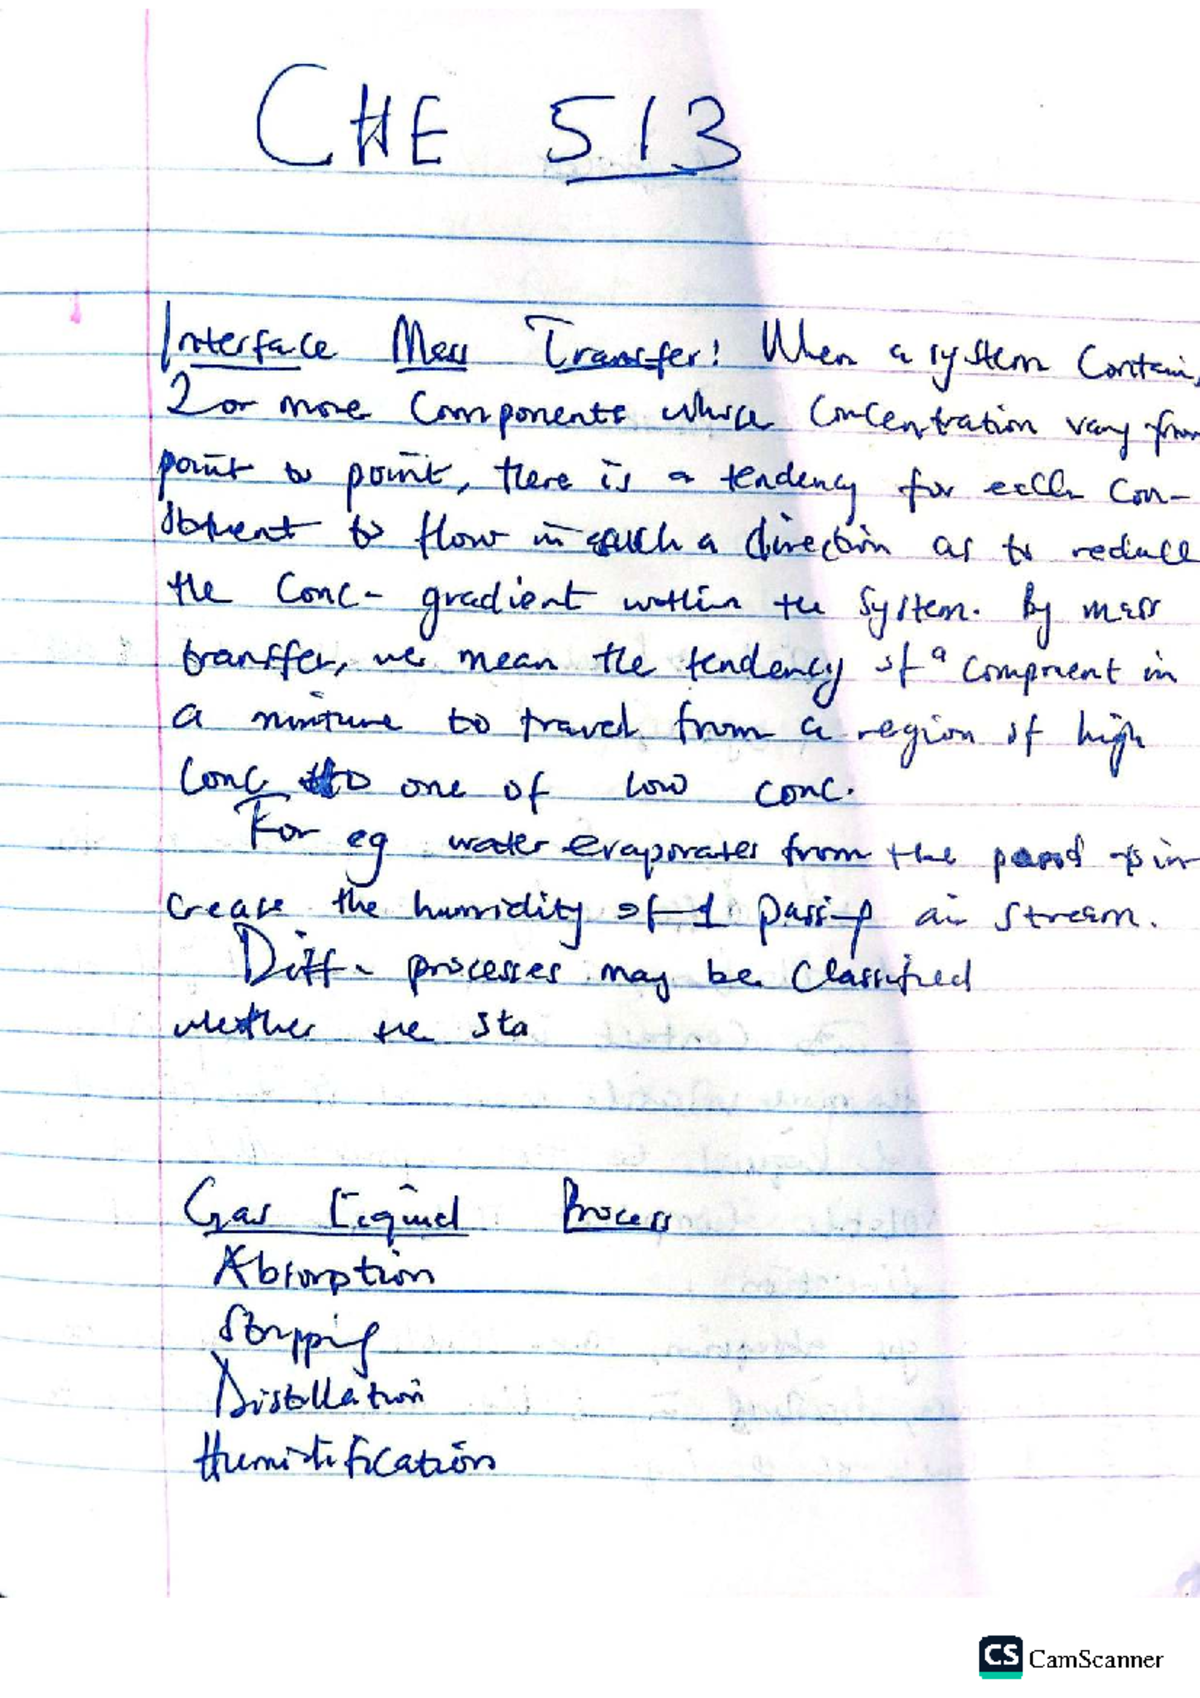 CHE 513
Interface Mass Transfer: When a system Contains
2 or more Components whose Concentration vary from
point to point, there is a tendency for each Con-
stituent to flow in such a direction as to reduce
the Conc- gradient within the System. By mass
transfer, we mean the tendency of a Component in
a mixture to travel from a region of high
Conc to one of low conc.
For eg water evaporates from the pond in
crease the humidity of passing air stream.
Diff- processes may be Classified
whether the Sta
Gas Liquid Process
Absorption
Stripping
Distillation
Humidification
CS CamScanner